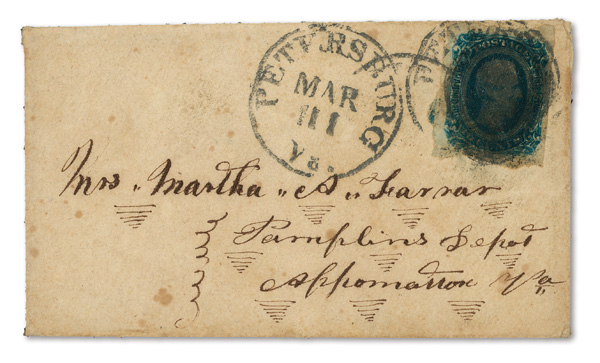 PETERSBURG
MAR
11
Va.
POSTAGE
Mrs „ Martha „ A „ Farrar
Pamplins Depot
Appomattox Va